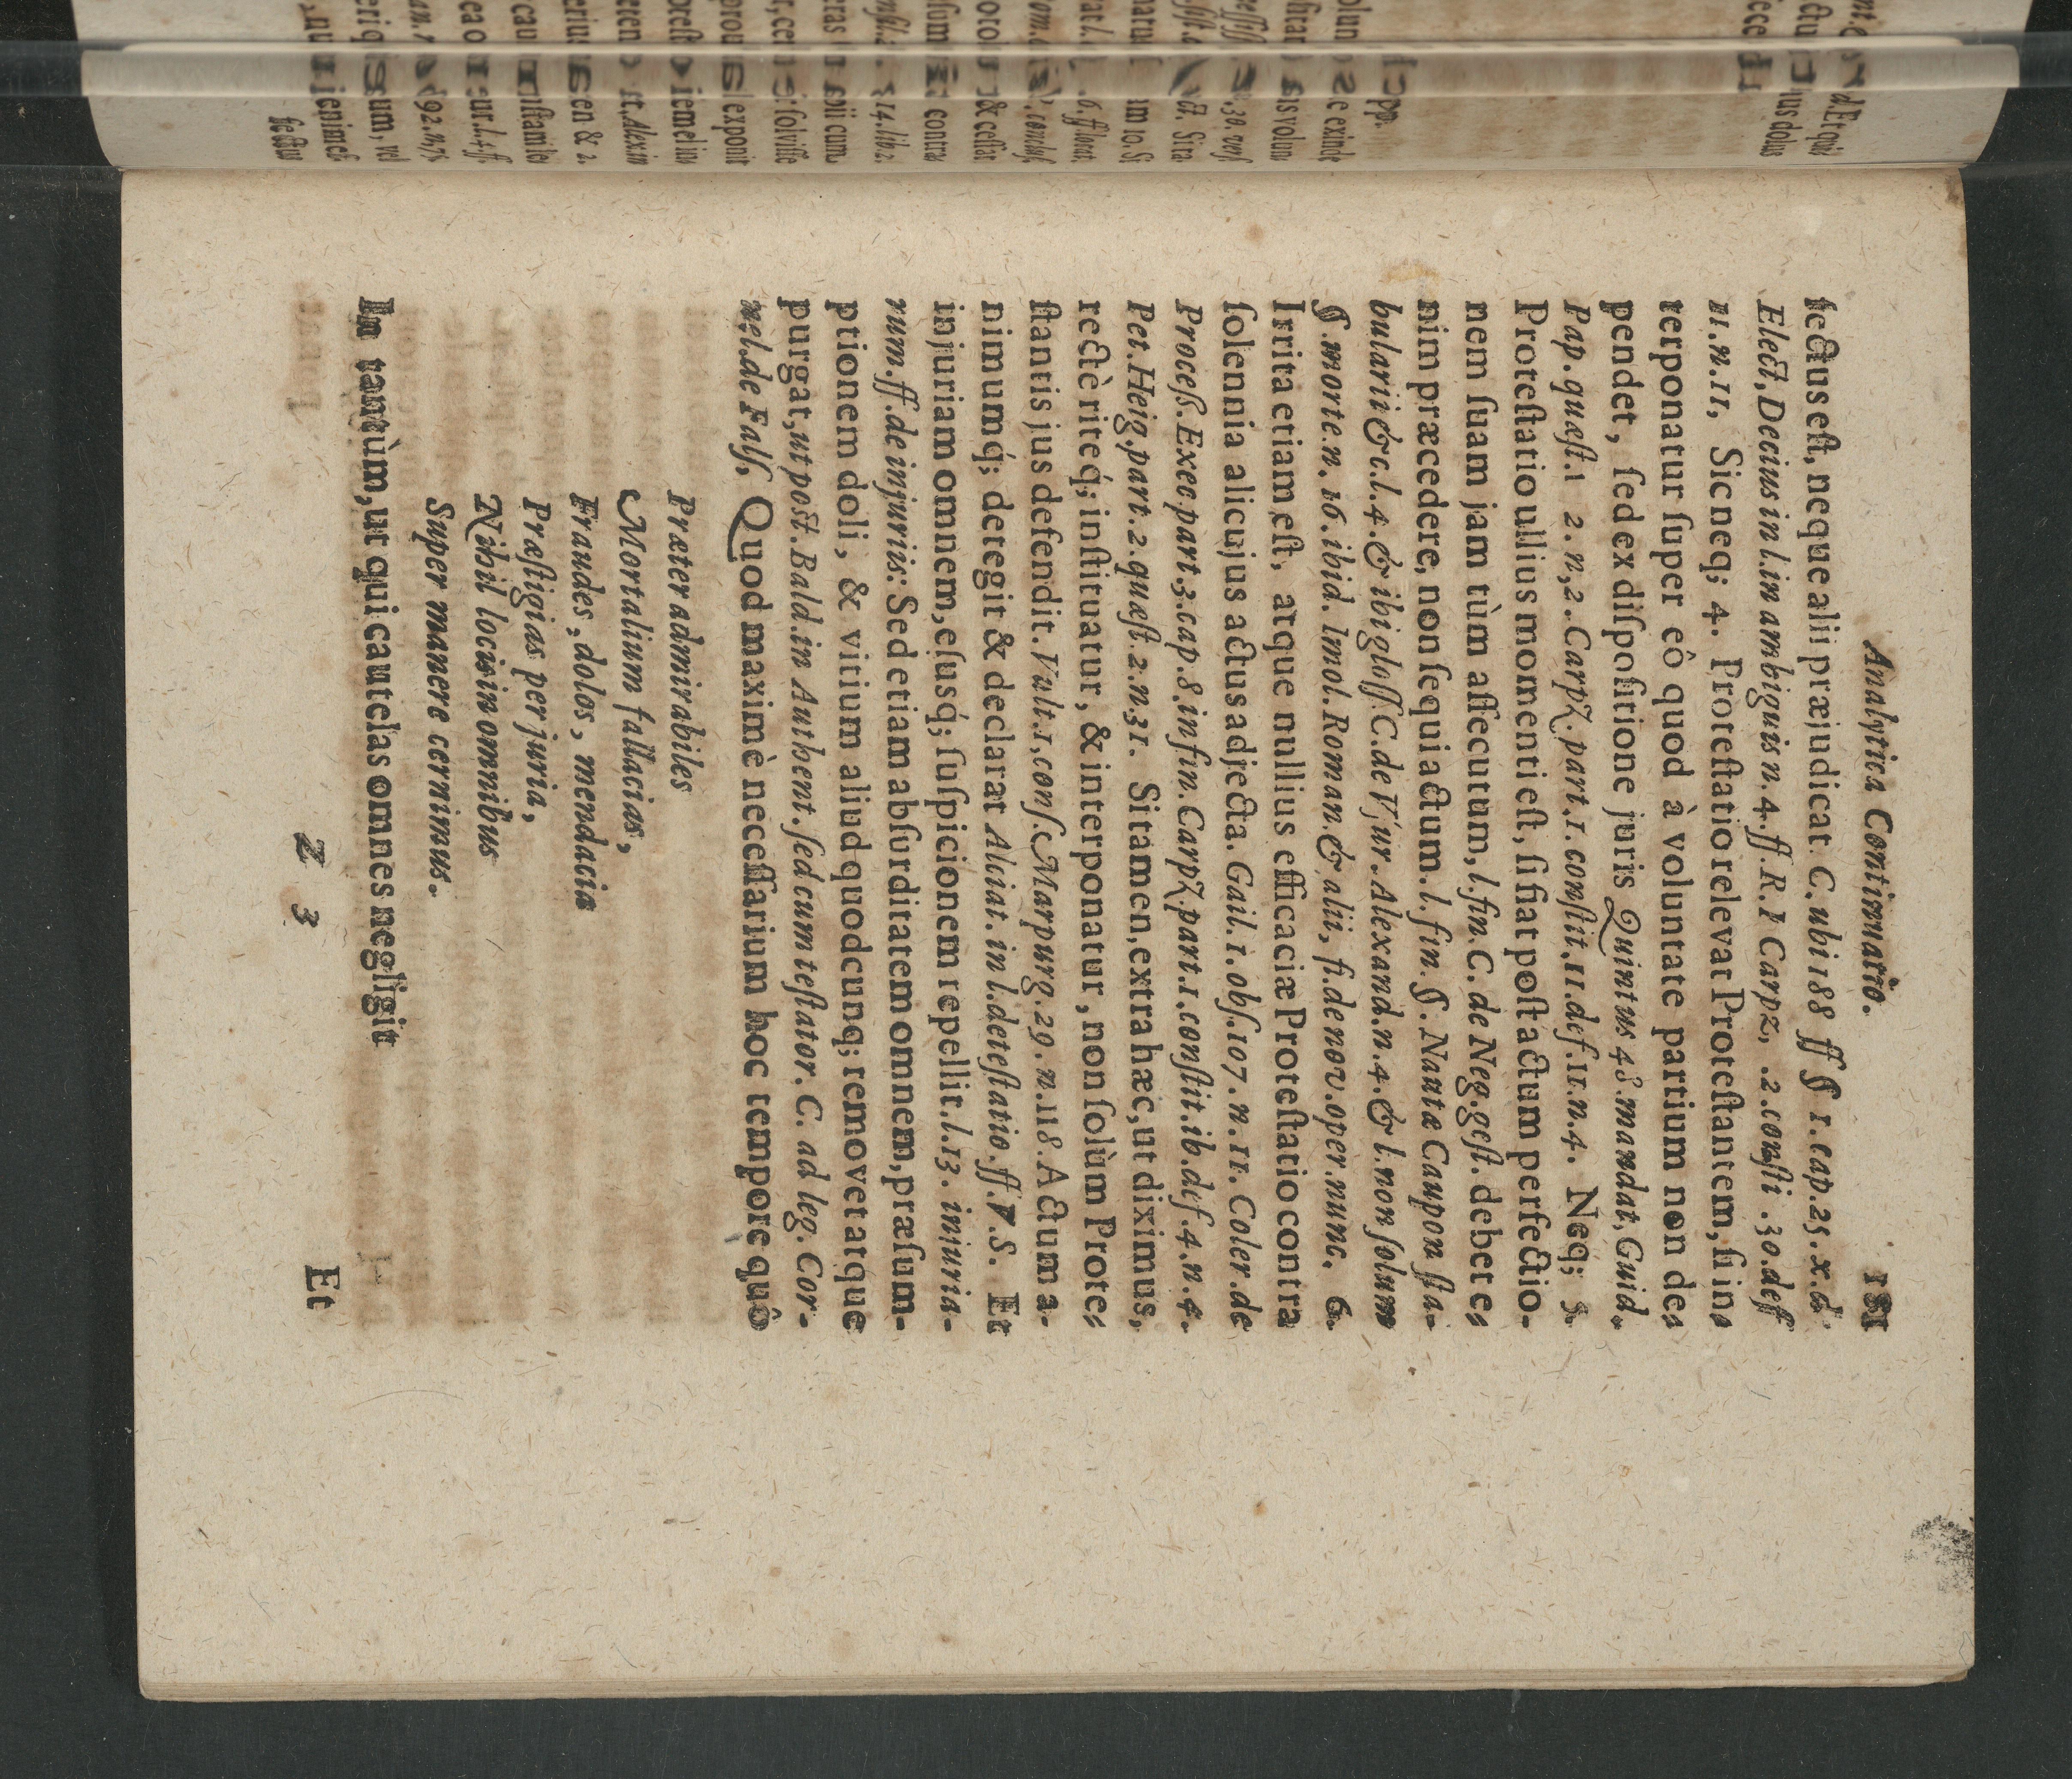 Analytica Continuatio. 181
fectus est, neque alii præjudicat. C. ubi 188 ff § 1. cap. 25. x. d.
Elect, Decius in l. in ambiguis n. 4. ff. R. I Carpz, .2. consti .30. deff
11. n. 11, Sic neq; 4. Protestatio relevat Protestantem, si in⸗
terponatur super eô quod à voluntate partium non de⸗
pendet, sed ex dispositione juris Quintus 48. mandat, Guid.
Pap. quæst. 1 2. n, 2. Carpz. part. 1. constit, 11. def. 11. n. 4. Neq; 5.
Protestatio ullius momenti est, si fiat post actum perfectio-
nem suam jam tùm assecutum, l. fin. C. de Neg. gest. debere⸗
nim præcedere, non sequi actum. l. fin. §. Nautæ Caupon sta-
bularii & c. l. 4. & ibi gloss. C. de V´sur. Alexand. n. 4. & l. non solum
§. morte. n. 16. ibid. Imol. Roman. & alii, fi. de nov. oper. nunc. 6.
Irrita etiam est, atque nullius efficaciæ Protestatio contra
solennia alicujus actus adjecta. Gail. 1. obs. 107. n. 11. Coler. de
Process. Exec. part. 3. cap. 8. in fin. Carpz. part. 1. constit. ib. def. 4. n. 4.
Pet. Heig, part. 2. quæst. 2. n. 31. Si tamen, extra hæc, ut diximus,
rectè riteq́; instituatur, & interponatur, non solùm Prote⸗
stantis jus defendit. Vult. 1, cons. Marpurg. 29. n. 118. Actum a-
nimumq́; detegit & declarat Alciat. in l. detestatio. ff. V. S. Et
injuriam omnem, ejusq́; suspicionem repellit. l. 13. injuria-
rum. ff. de injuriis: Sed etiam absurditatem omnem, præsum-
ptionem doli, & vitium aliud quodcunq; removet atque
purgat, ut post. Bald. in Authent. sed cum testator. C. ad leg. Cor-
nel. de Fals, Quod maximè necessarium hoc tempore quô
Præter admirabiles
Mortalium fallacias,
Fraudes, dolos, mendacia
Præstigias per juria,
Nihil locis in omnibus
Super manere cernimus.
In tantùm, ut qui cautelas omnes negligit
Z 3 Et